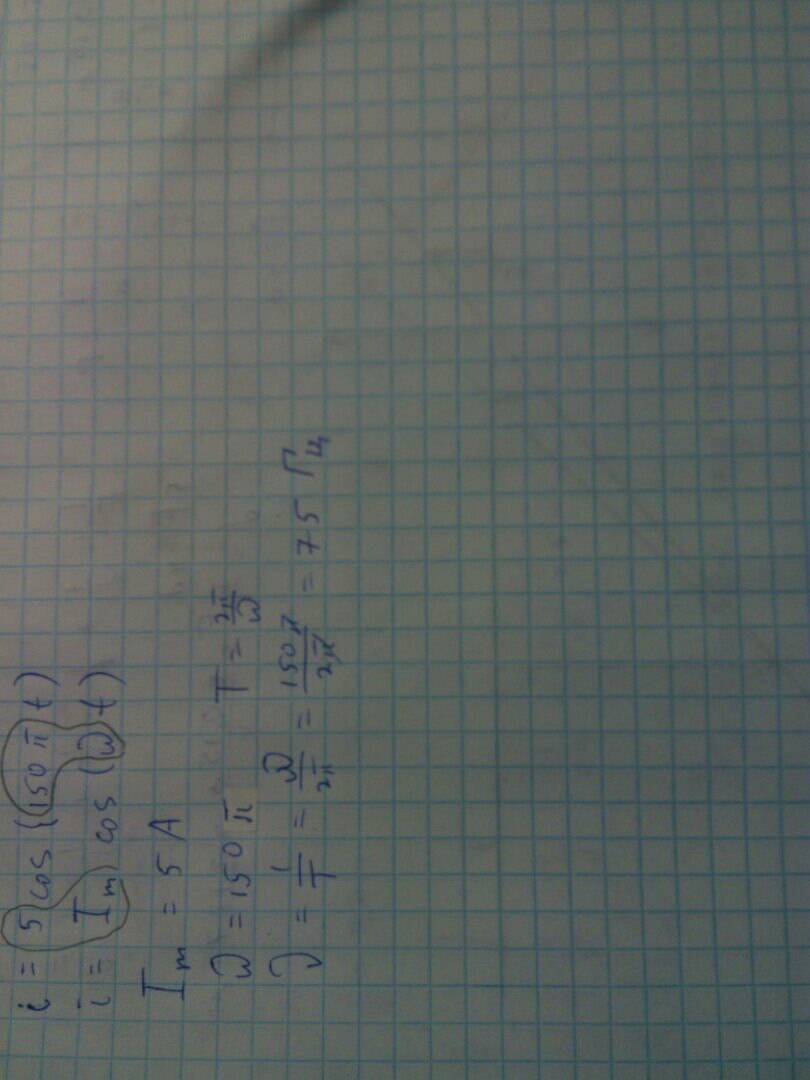 i = 5 cos (150 π t)
i = I_m cos (ω t)
I_m = 5 A
ω = 150 π T = 2π/ω
ν = 1/T = ω/2π = 150π/2π = 75 Гц